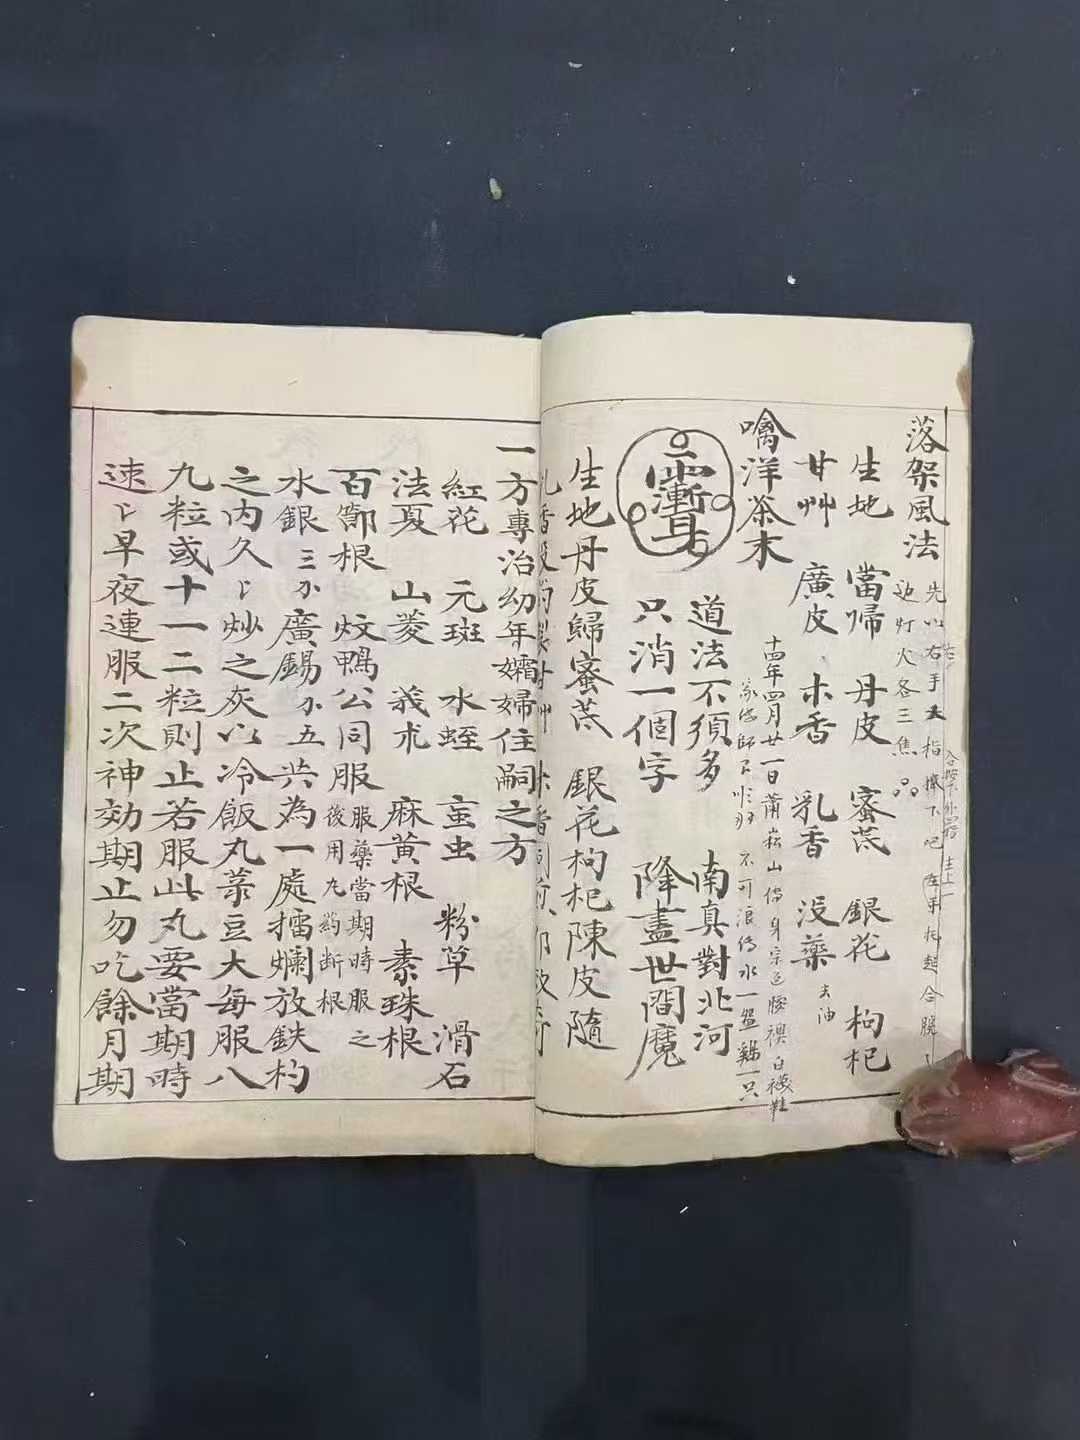 落架風法
先以右手大指擠下吧左手托起合腕
边灯火各三焦
生地 當帰 丹皮 蜜芪 銀花 枸杞
甘艸 廣皮 木香 乳香 没藥 去油
噙洋茶末
十四年四月廿一日蕭崧山傳身宗
不可浪傳水一盌雞一只
道法不須多 南真對北河
只消一個字 降盡世間魔
生地丹皮歸蜜芪 銀花枸杞陳皮隨
一方專治幼年孀婦住嗣之方
紅花 元斑 水蛭 虻虫 粉草 滑石
法夏 山菱 莪朮 麻黃根 素珠根
百節根 炆鴨公同服 服藥當期時服之
後用丸約断根
水銀三分廣錫分五共為一處擂爛放鉄杓
之内久〻炒之灰以冷飯丸菉豆大每服八
九粒或十一二粒則止若服此丸要當期時
速〻早夜連服二次神効期止勿吃餘月期